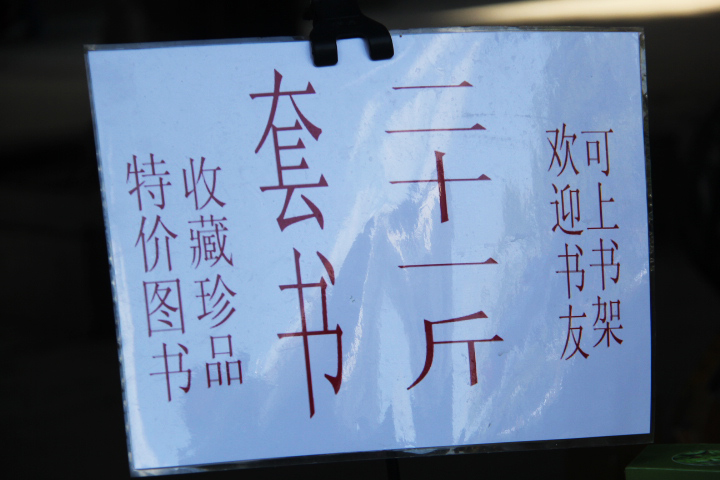 特价图书
收藏珍品
套书
二十一斤
欢迎书友
可上书架